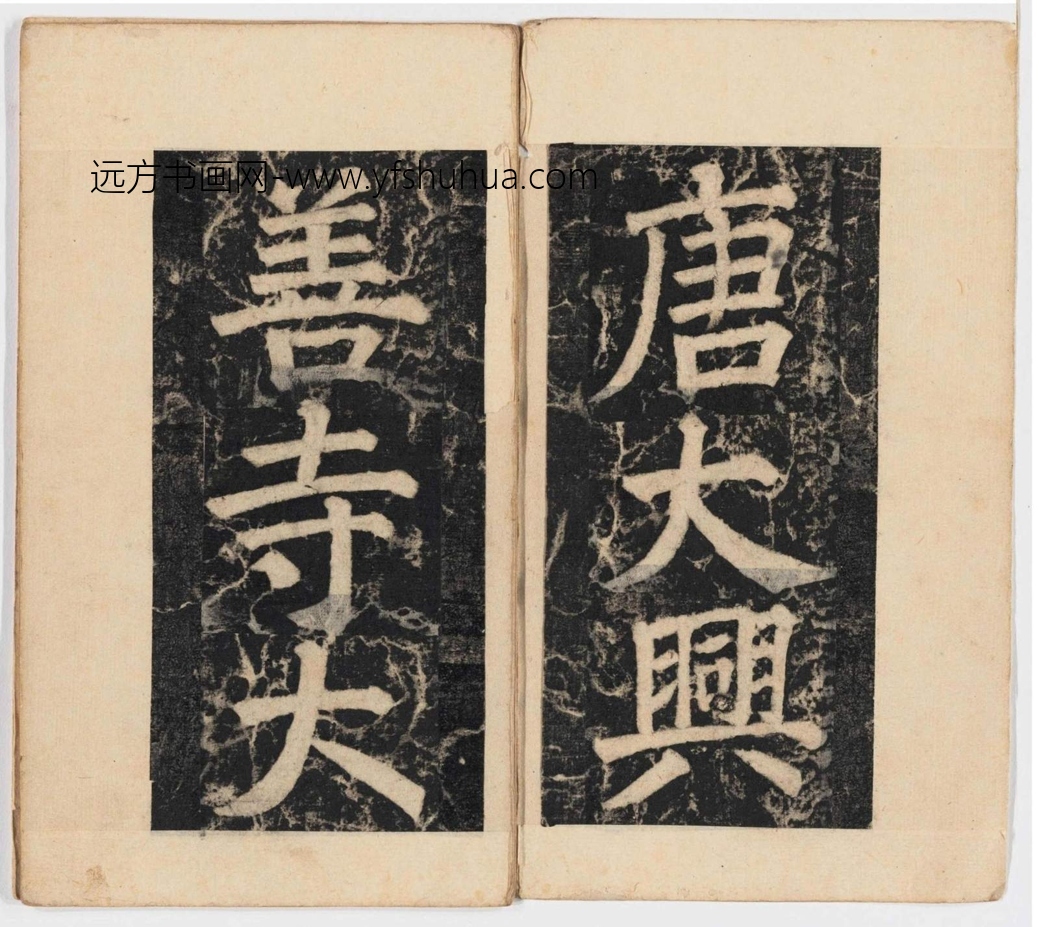 远方书画网-www.yfshuhua.com
唐大興
善寺大